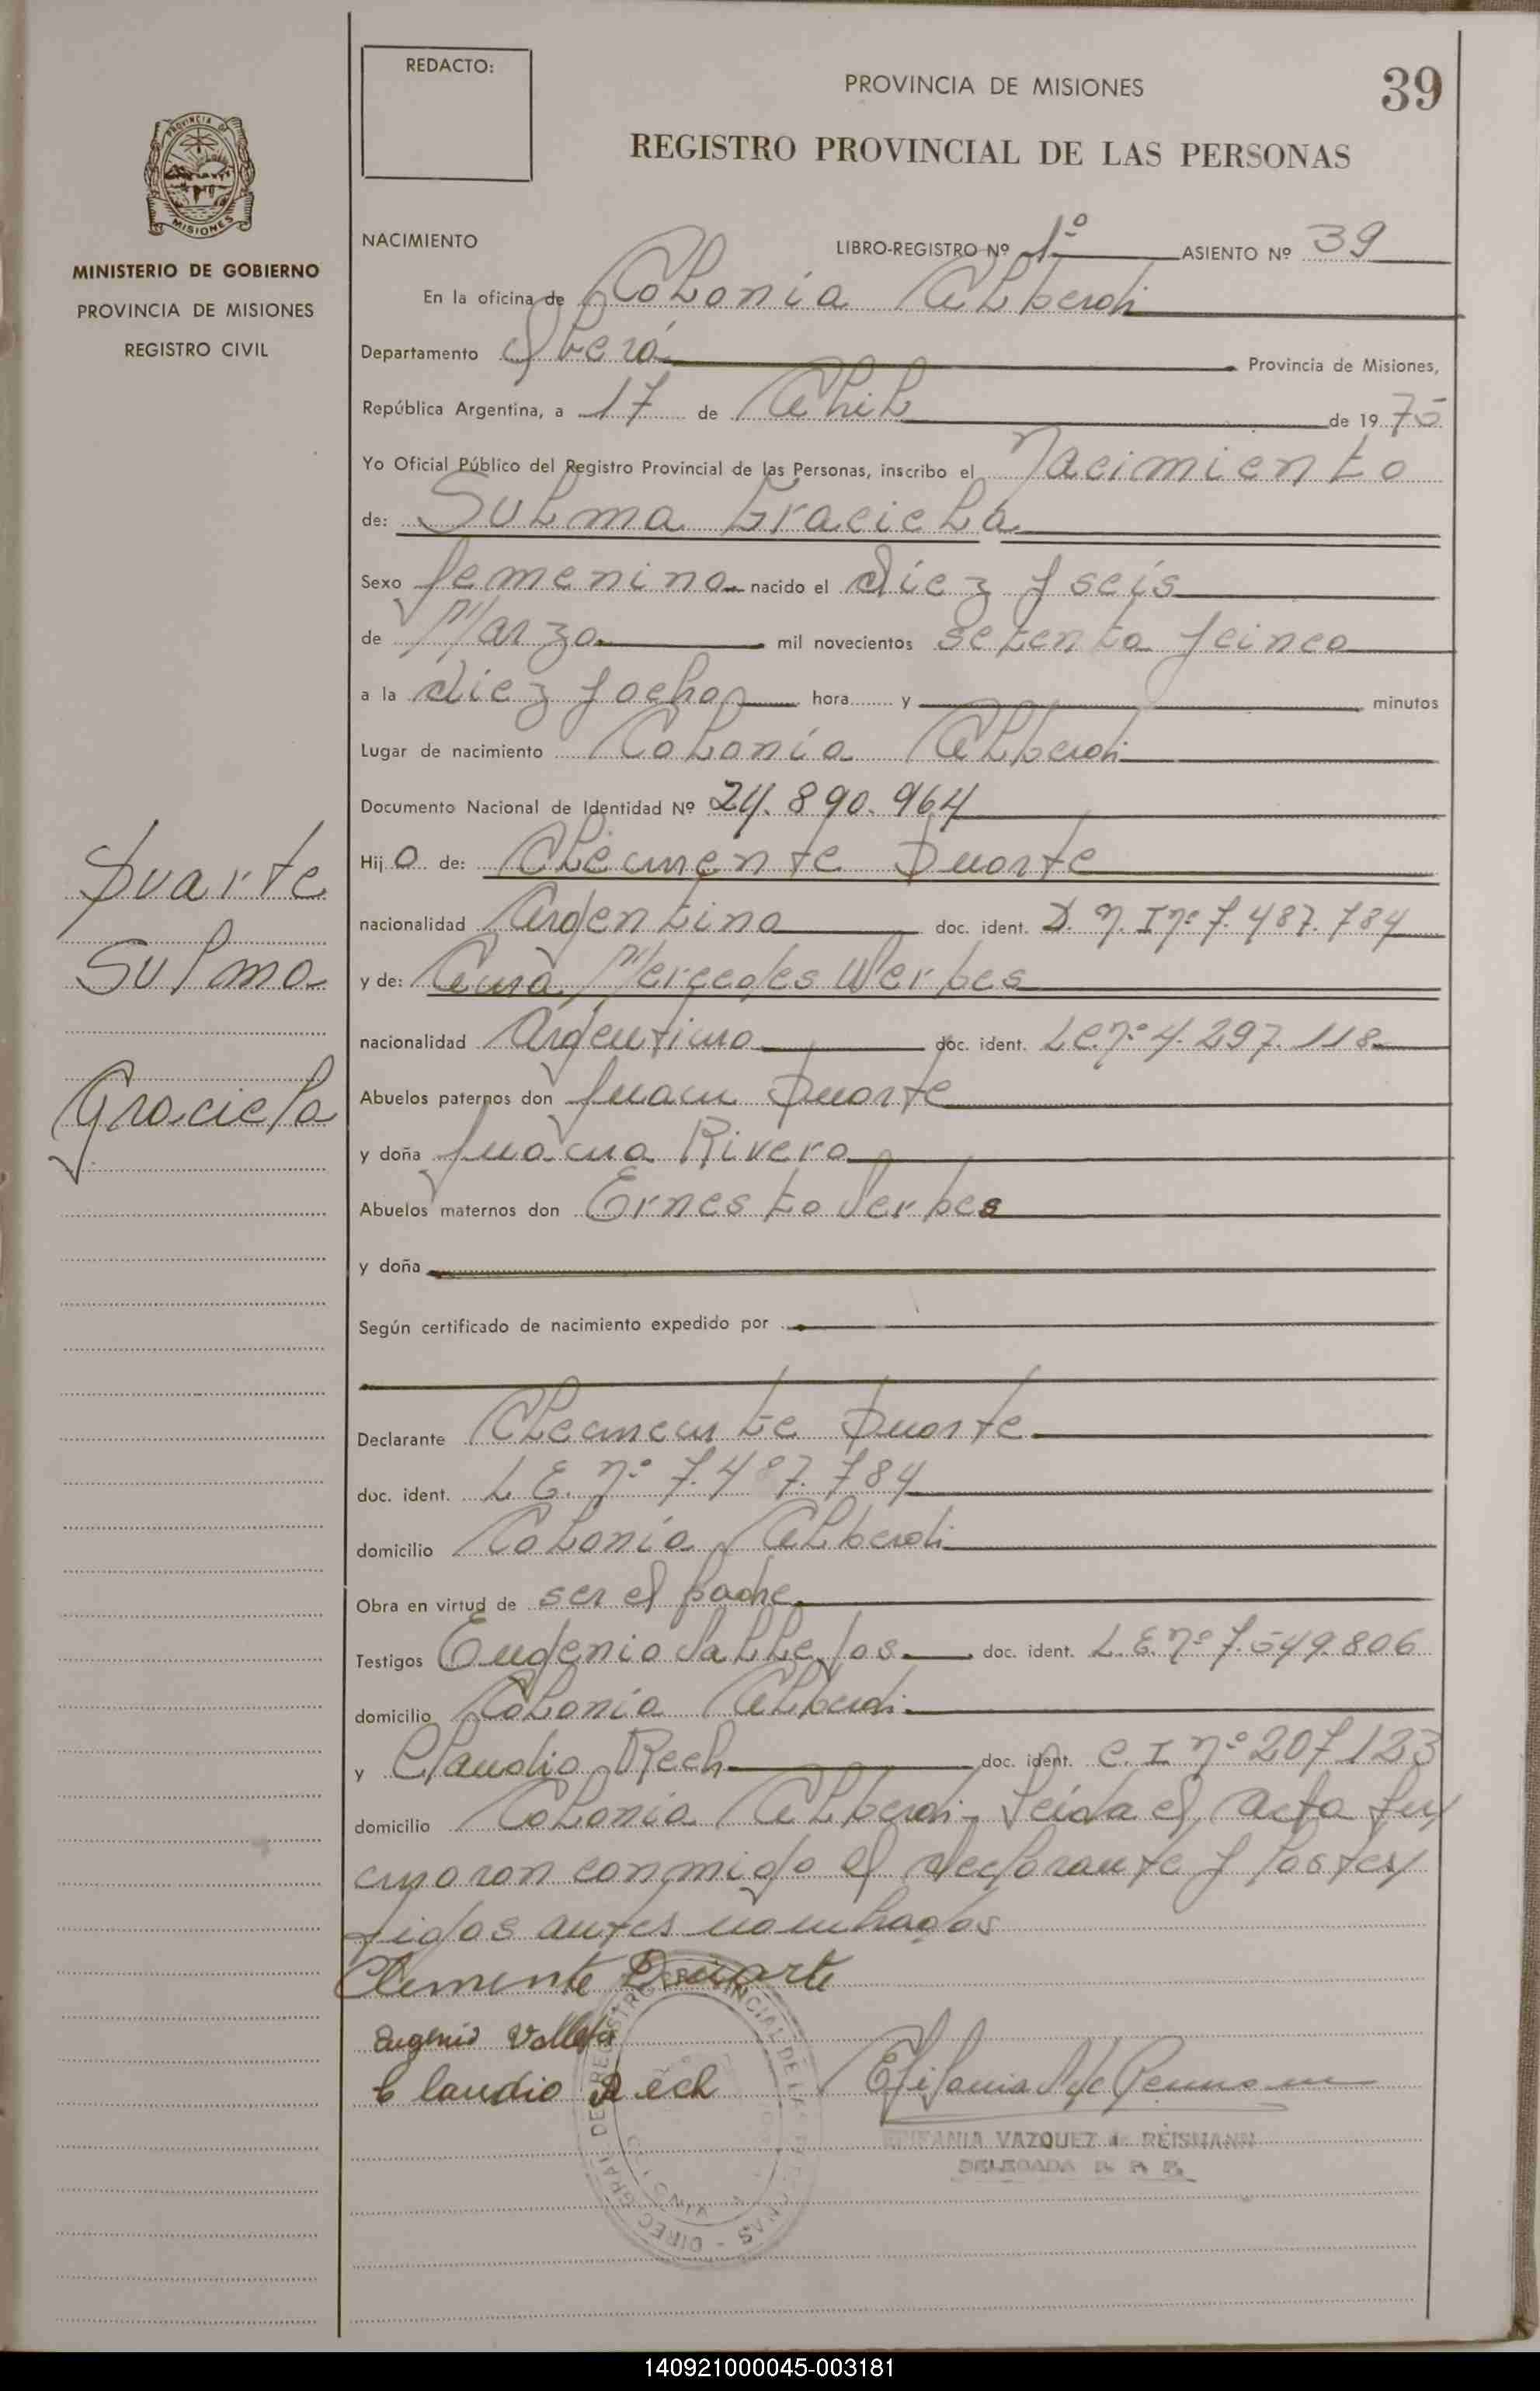 REDACTO:
PROVINCIA DE MISIONES
39
REGISTRO PROVINCIAL DE LAS PERSONAS
PROVINCIA DE
MISIONES
MINISTERIO DE GOBIERNO
PROVINCIA DE MISIONES
REGISTRO CIVIL
NACIMIENTO LIBRO-REGISTRO Nº 1º ASIENTO Nº 39
En la oficina de Colonia Alberdi
Departamento Oberá Provincia de Misiones,
República Argentina, a 17 de Abril de 1975
Yo Oficial Público del Registro Provincial de las Personas, inscribo el Nacimiento
de: Sulma Graciela
Sexo femenino nacido el diez y seis
de Marzo mil novecientos setenta y cinco
a la diez y ocho hora y minutos
Lugar de nacimiento Colonia Alberdi
Documento Nacional de Identidad Nº 24.890.964
Duarte
Sulma
Graciela
Hijo de: Clemente Duarte
nacionalidad Argentina doc. ident. D.N.I nº 7.487.784
y de: Mercedes Werbes
nacionalidad Argentina doc. ident. L.C. nº 4.297.118
Abuelos paternos don Juan Duarte
y doña Juana Rivero
Abuelos maternos don Ernesto Verbes
y doña
Según certificado de nacimiento expedido por
Declarante Clemente Duarte
doc. ident. L.E. nº 7.487.784
domicilio Colonia Alberdi
Obra en virtud de ser el padre
Testigos Eugenio Vallejos doc. ident. L.E. nº 7.549.806
domicilio Colonia Alberdi
y Claudio Rech doc. ident. C.I nº 207123
domicilio Colonia Alberdi- Leída el acta fir
maron conmigo el declarante y los tes
tigos antes nombrados
Clemente Duarte
Eugenio
Claudio Rech
Epifania V de Reismann
EPIFANIA VAZQUEZ de REISMANN
DELEGADA R. P. P.
140921000045-003181